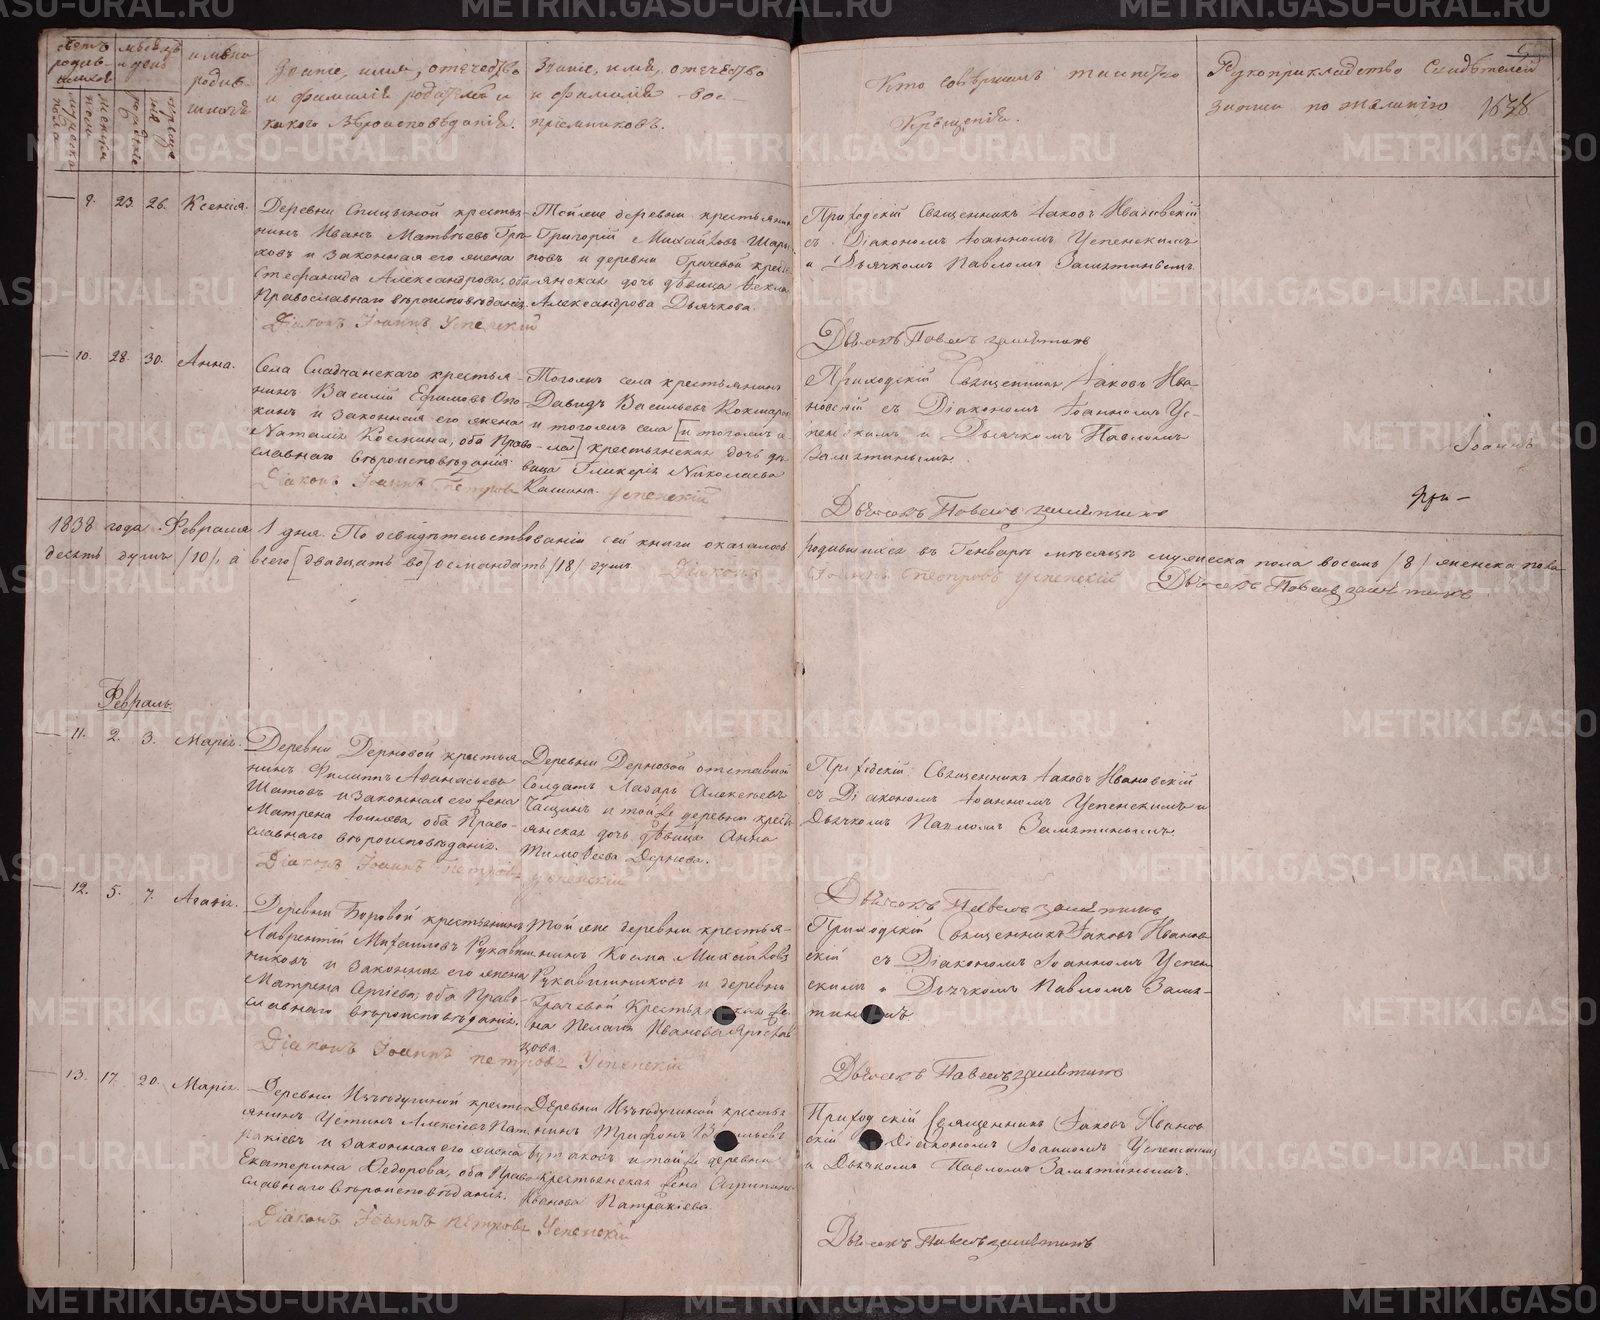 Счетъ родив-шихся
мѣсяцъ и день
имѣна родив-шихъ
Званіе, имя, отечество
и фамилія родителей и
какого Вѣроисповѣданія.
Званіе, имя, отечество
и фамилія вос-
пріемниковъ.
Кто совершалъ таинство
Крѣщенія.
Рукоприкладство Свидѣтелей
записи по желанію
мужеска пола
женска пола
рожденіе
крещеніе
9. 23. 26. Ксенія.
Деревни Спицыной крестья-
нинъ Иванъ Матвѣевъ
и законная его жена
Стефанида Александрова, оба
Православнаго вѣроисповѣданія.
Діаконъ Іоаннъ Успенскій
Тойже деревни крестьянинъ
Григорій Михайловъ
и деревни Грачевой
дочь дѣвица
Александрова Дьячкова.
Приходскій Священникъ Іаковъ Ивановскій
съ Діакономъ Іоанномъ Успенскимъ
и Дьячкомъ Павломъ Замятинымъ.
Дьячекъ Павелъ Замятинъ
10. 28. 30. Анна.
Села крестья-
нинъ Василій Ефимовъ
и законная его жена
Наталія Космина, оба Право-
славнаго вѣроисповѣданія
Діаконъ Іоаннъ Петровъ Успенскій
Тогожъ села крестьянинъ
Давидъ Васильевъ
и тогожъ села [и тогожъ се-
ла] крестьянская дочь дѣ-
вица Гликерія Николаева
Приходскій Священникъ Іаковъ Ива-
новскій съ Діакономъ Іоанномъ Ус-
пенскимъ и Дьячкомъ Павломъ
Замятинымъ.
Іоаннъ
Дьячекъ Павелъ Замятинъ
при-
1838 года Февраля 1 дня. По освидѣтельствованіи сей книги оказалось родившихся въ Генварѣ мѣсяцѣ мужеска пола восемь /8/ женска пола
десять душъ /10/, а всего [двадцать во] осмнадцать /18/ душъ. Діаконъ Іоаннъ Петровъ Успенскій Дьячекъ Павелъ Замятинъ
Февраль.
11. 2. 3. Марія.
Деревни Дерновой крестья-
нинъ Филиппъ Аѳанасьевъ
Шатовъ и законная его жена
Матрена, оба Право-
славнаго вѣроисповѣданія.
Діаконъ Іоаннъ Петровъ Успенскій
Деревни Дерновой отставной
Солдатъ Лазарь Алексѣевъ
и тойже деревни кресть-
янская дочь дѣвица Анна
Тимоѳеева Дернова.
Приходскій Священникъ Іаковъ Ивановскій
съ Діакономъ Іоанномъ Успенскимъ и
Дьячкомъ Павломъ Замятинымъ.
Дьячекъ Павелъ Замятинъ
12. 5. 7. Агаѳія.
Деревни Боровой крестьянинъ
Лаврентій Михайловъ Рукавиш-
никовъ и законная его жена
Матрена Сергіева, оба Право-
славнаго вѣроисповѣданія.
Діаконъ Іоаннъ Петровъ Успенскій
Тойже деревни крестья-
нинъ Косма Михайловъ
Рукавишниковъ и деревни
Грачевой Крестьянская же-
на Пелагія Иванова Ярослав-
цова.
Приходскій Священникъ Іаковъ Иванов-
скій съ Діакономъ Іоанномъ Успен-
скимъ и Дьячкомъ Павломъ Замя-
тинымъ
Дьячекъ Павелъ Замятинъ
13. 17. 20. Марія.
Деревни крестья-
янинъ Устинъ Алексѣевъ Пат-
ракіевъ и законная его жена
Екатерина Ѳедорова, оба Право-
славнаго вѣроисповѣданія.
Діаконъ Іоаннъ Петровъ Успенскій
Деревни крестья-
нинъ Трифонъ Васильевъ
Бутаковъ и тойже деревни
крестьянская жена Агрипина
Иванова Патракіева.
Приходскій Священникъ Іаковъ Иванов-
скій съ Діакономъ Іоанномъ Успенскимъ
и Дьячкомъ Павломъ Замятинымъ.
Дьячекъ Павелъ Замятинъ
METRIKI.GASO-URAL.RU